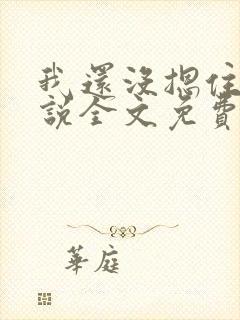 我還沒摁住
說全文免費
華庭